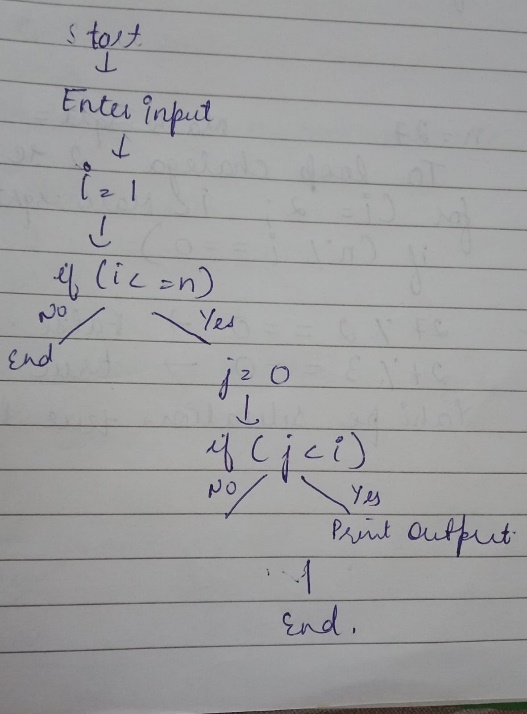 Start
Enter input
i = 1
if (i <= n)
NO Yes
End
j = 0
if (j < i)
NO Yes
Print output.
End.